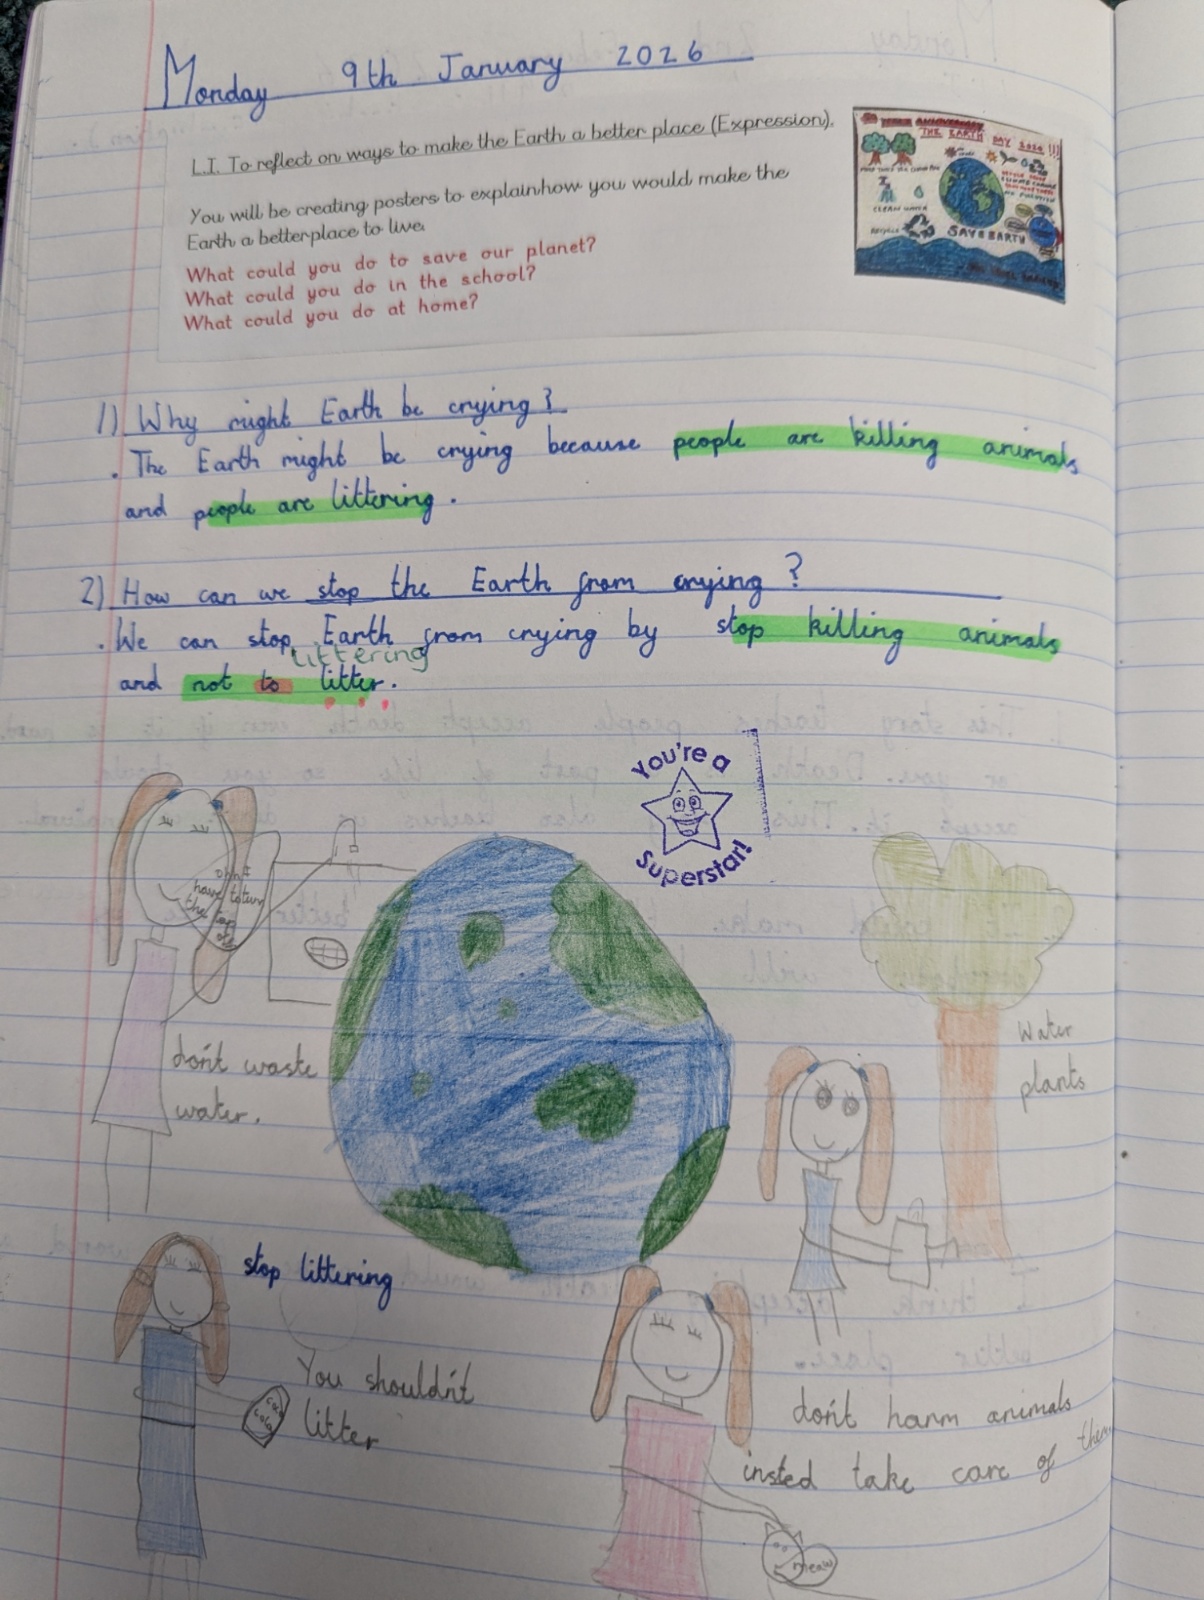 Monday 9th January 2026
L.I. To reflect on ways to make the Earth a better place (Expression).
You will be creating posters to explainhow you would make the
Earth a betterplace to live.
What could you do to save our planet?
What could you do in the school?
What could you do at home?
THE EARTH DAY
CLEAN WATER
RECYCLE
SAVE EARTH
1) Why might Earth be crying?
. The Earth might be crying because people are killing animals
and people are littering.
2) How can we stop the Earth from crying?
. We can stop Earth from crying by stop killing animals
littering
and not to litter.
You're a
Superstar!
have to turn
the tap
don't waste
water.
Water
plants
stop littering
You shouldn't
litter
coca
cola
don't harm animals
insted take care of them
meow